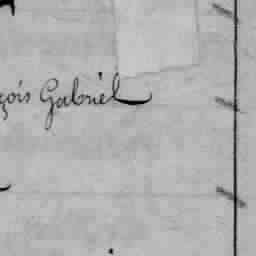 çois Gabriel